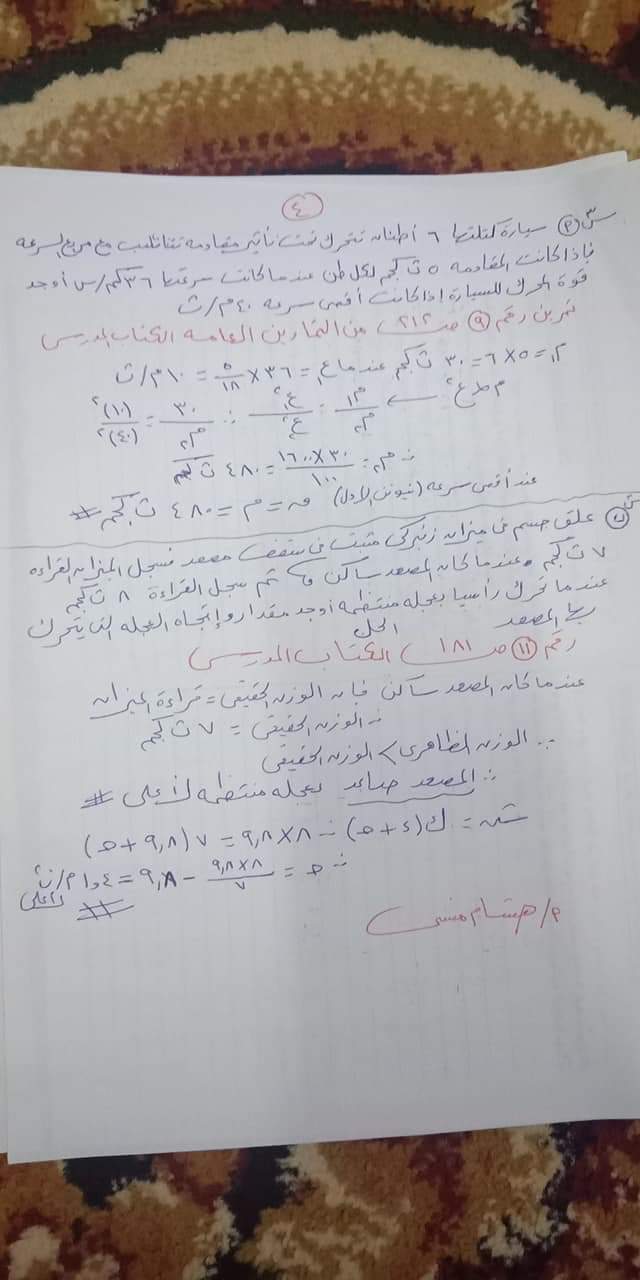 ٤
س٣ (٢) سيارة كتلتها ٦ أطنان تتحرك تحت تأثير مقاومة تتناسب مع مربع السرعة
فإذا كانت المقاومة ٥ ث كجم لكل طن عندما كانت سرعتها ٣٦ كم/س أوجد
قوة المحرك للسيارة إذا كانت أقصى سرعه ٤٠ م/ث
تمرين رقم (٩) صـ ٢١٢ من التمارين العامه الكتاب المدرسى
م١ = ٥ × ٦ = ٣٠ ث كجم عندما ع١ = ٣٦ × ٥/١٨ = ١٠ م/ث
م ∝ ع٢ ← م١/م٢ = ع١٢/ع٢٢ ∴ ٣٠/م٢ = (١٠)٢/(٤٠)٢
∴ م٢ = ٣٠ × ١٦٠٠/١٠٠ = ٤٨٠ ث كجم
عند أقصى سرعه (نيوتن الأول) ق = م = ٤٨٠ ث كجم #
علق جسم فى ميزان زنبركى مثبت فى سقف مصعد فسجل الميزان القراءه
٧ ث كجم عندما كان المصعد ساكن ثم سجل القراءة ٨ ث كجم
عندما تحرك رأسيا بعجله منتظمه أوجد مقدار وإتجاه العجله التى يتحرك
بها المصعد الحل
رقم (١١) صـ ١٨١ الكتاب المدرسى
عندما كان المصعد ساكن فإن الوزن الحقيقى = قراءة الميزان
∴ الوزن الحقيقى = ٧ ث كجم
∵ الوزن الظاهرى > الوزن الحقيقى
∴ المصعد صاعد بعجله منتظمه لأعلى #
ش = ك(ء + حـ) ∴ ٨ × ٩,٨ = ٧(٩,٨ + حـ)
∴ حـ = ٨ × ٩,٨/٧ − ٩,٨ = ١,٤ م/ث٢
لأعلى #
م/ هشام منسى